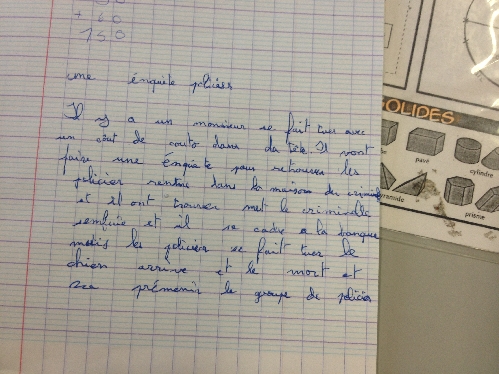 + 60
150
une énquète policièr
Il y a un monsieur se fait tuer avec
un cout de couto dans la téte. Il vont
faire une énquète pour retrouver les
policier rentre dans la maison du criminel
et il ont trouver met le criminelle
et il se cache a la banque
mais les policier se fait tuer le
chien arrive et le mort et
prémenir le groupe de policier
SOLIDES
pavé
cylindre
pyramide
prisme